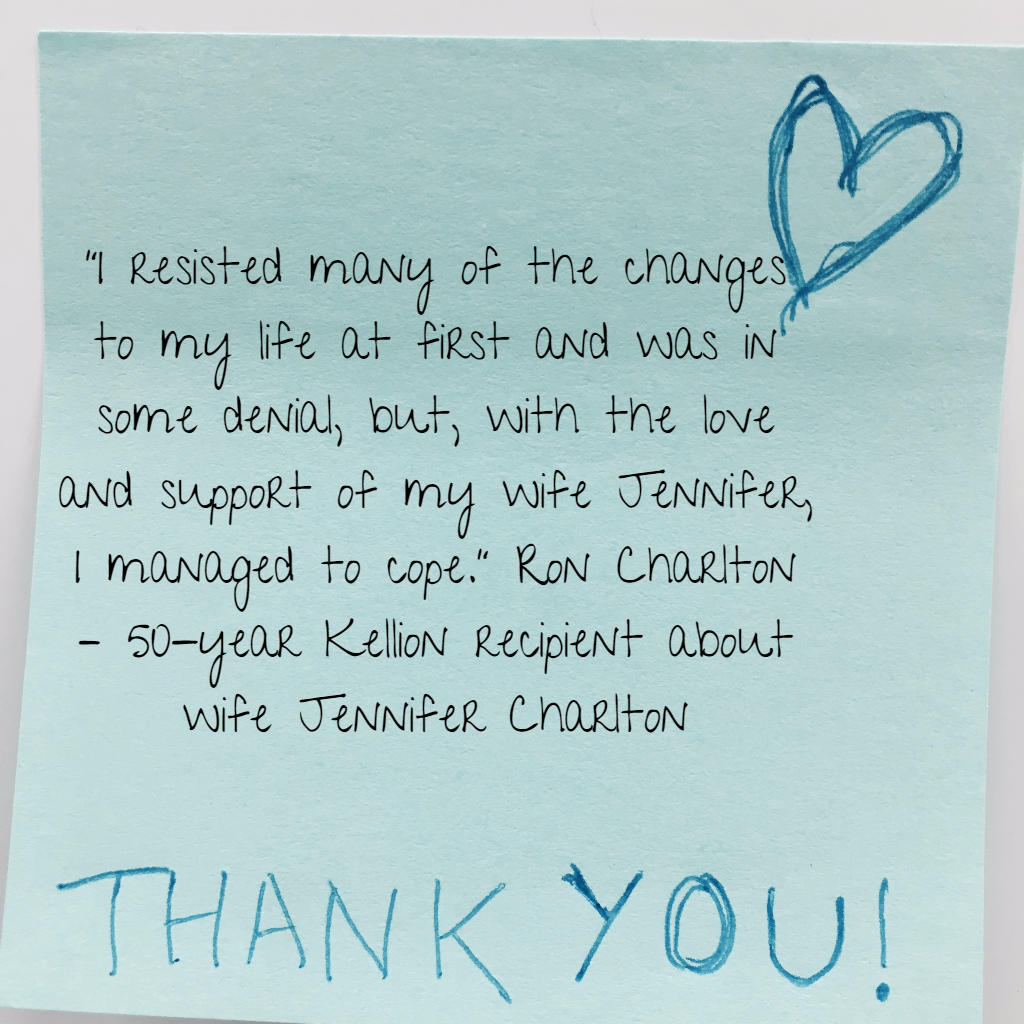 "I resisted many of the changes
to my life at first and was in
some denial, but, with the love
and support of my wife Jennifer,
I managed to cope." Ron Charlton
- 50-year Kellion recipient about
wife Jennifer Charlton
THANK YOU!